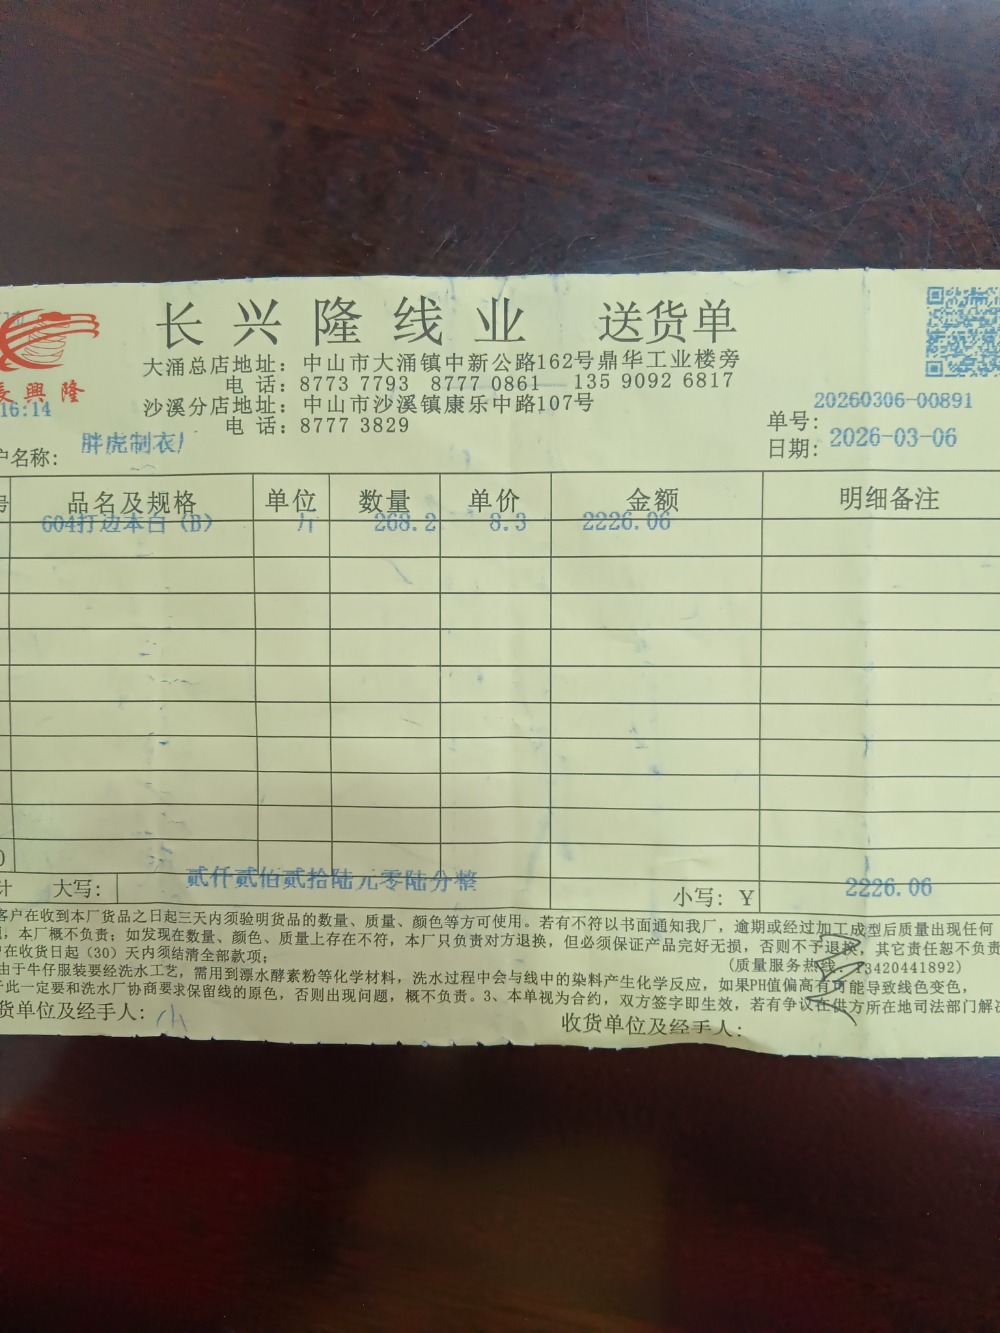 长兴隆线业 送货单
大涌总店地址：中山市大涌镇中新公路162号鼎华工业楼旁
电话：8773 7793 8777 0861 135 9092 6817
長興隆
16:14
沙溪分店地址：中山市沙溪镇康乐中路107号
电话：8777 3829
单号：20260306-00891
日期：2026-03-06
户名称：胖虎制衣厂
号 品名及规格 单位 数量 单价 金额 明细备注
604打边本白（B） 斤 268.2 8.3 2226.06
计 大写：贰仟贰佰贰拾陆元零陆分整 小写：￥ 2226.06
客户在收到本厂货品之日起三天内须验明货品的数量、质量、颜色等方可使用。若有不符以书面通知我厂，逾期或经过加工成型后质量出现任何
，本厂概不负责；如发现在数量、颜色、质量上存在不符，本厂只负责对方退换，但必须保证产品完好无损，否则不予退换，其它责任恕不负责
在收货日起（30）天内须结清全部款项；
(质量服务热线：13420441892)
由于牛仔服装要经洗水工艺，需用到漂水酵素粉等化学材料，洗水过程中会与线中的染料产生化学反应，如果PH值偏高有可能导致线色变色，
于此一定要和洗水厂协商要求保留线的原色，否则出现问题，概不负责。3、本单视为合约，双方签字即生效，若有争议在供方所在地司法部门解决
货单位及经手人：
收货单位及经手人：